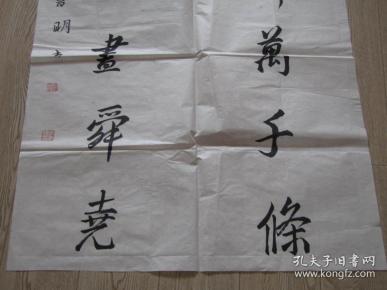 萬千條
盡舜堯
明
孔夫子旧书网
www.kongfz.com